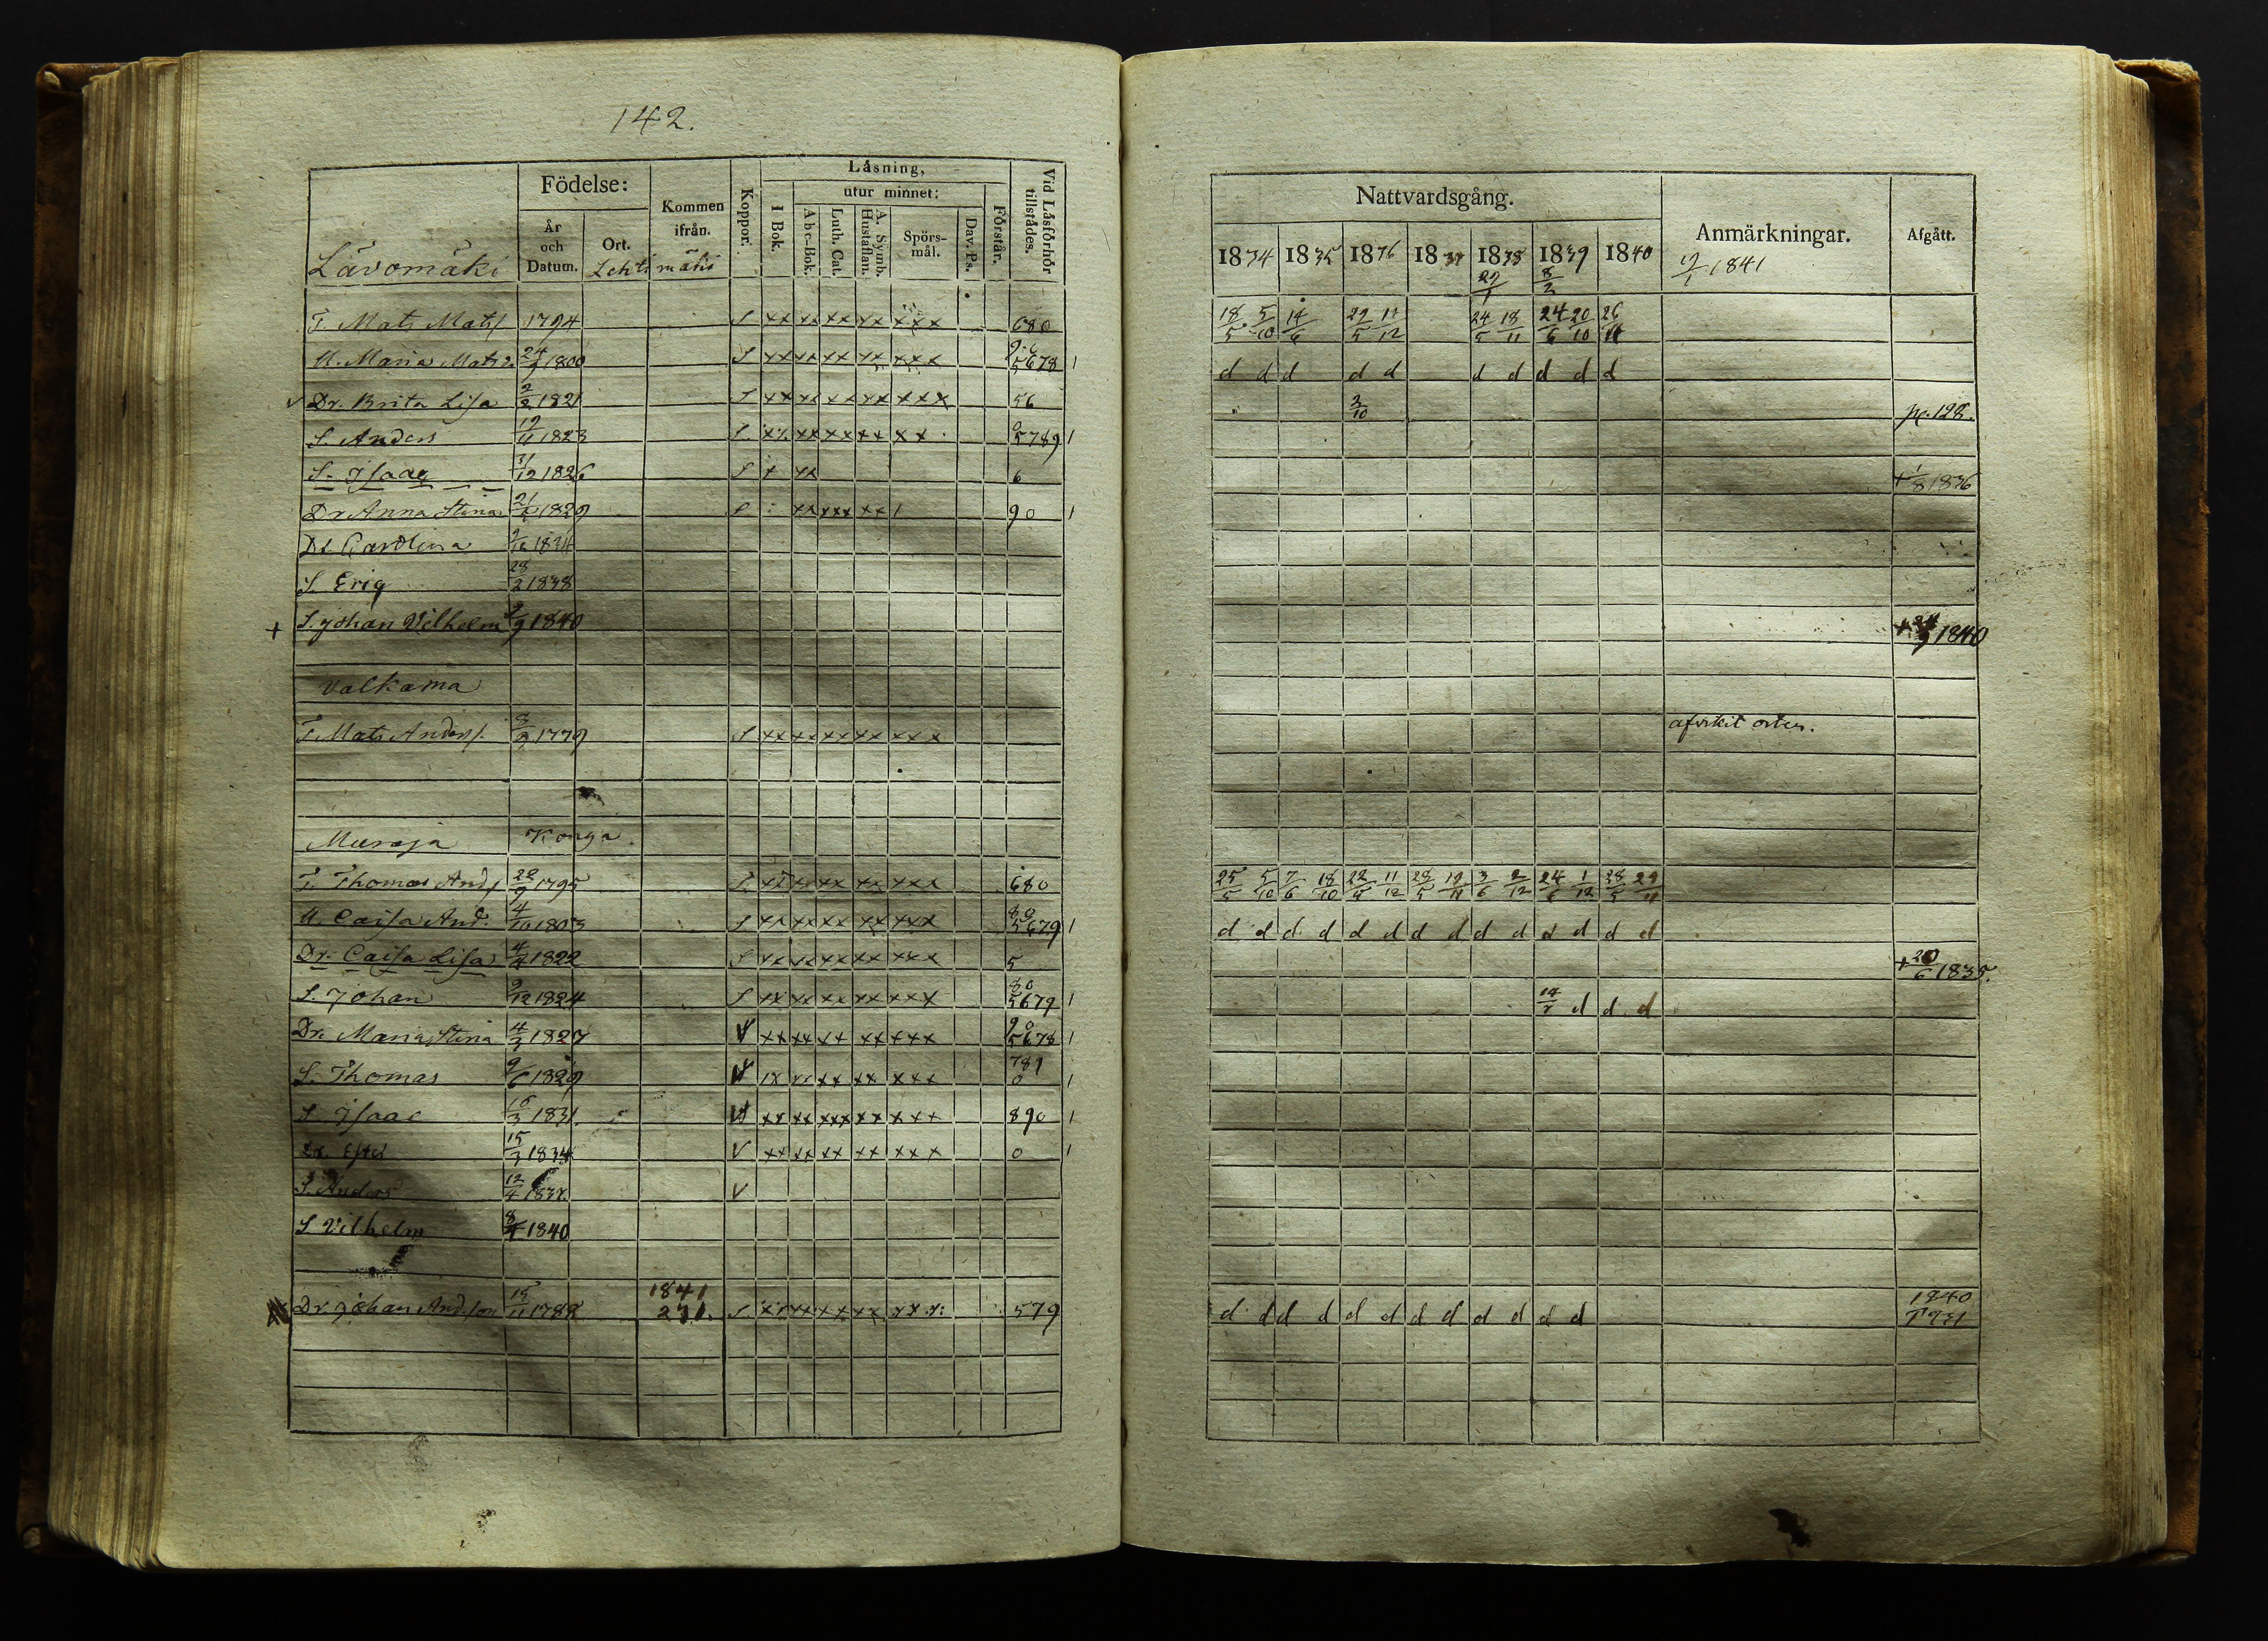 142.
Födelse: Kommen ifrån. Koppor. Läsning, Vid Läsförhör tillstädes.
utur minnet:
År och Datum. Ort. I Bok. Abc-Bok. Luth. Cat. A. Symb. Hustaflan. Spörs-mål. Dav. Ps. Förstår.
Lävomäki Lehtimäki
T. Mats Mats 1794 S xx xx xx xx xxx 680
M. Maria Mats 24/7 1800 S xx xx xx xx xxx 5678 1
Dr. Brita Lisa 2/2 1821 S xx xx xx xx xxx 56
S. Anders 1823 S. xx xx xx xx xx 5789 1
S. Isaac 31/12 1826 S x xx 6
Dr Anna Stina 1829 S xx xxx xx 1 90 1
Dr Carolina 1834
S. Eriq 28/2 1838
+ S. Johan Vilhelm 1840
Valkama
T. Mats Anders 8/9 1779 S xx xx xx xx xxx
Muraja Konga
T. Thomas And 22/9 1795 S. xx xx xx xx xxx 680
M. Caisa And. 4/10 1803 S xx xx xx xx xxx 80 5679 1
Dr. Caisa Lisa 1822 S xx xx xx xx xxx 5
S. Johan 9/12 1824 S xx xx xx xx xxx 80 5679 1
Dr. Maria Stina 4/3 1827 xx xx xx xx xxx 90 5678 1
S. Thomas 9/6 1829 xx xx xx xx xxx 789 0 1
S. Isaac 1831. xx xx xxx xx xxx 890 1
Dr. Ester 15/3 1834 V xx xx xx xx xxx 0 1
S. Anders 12/4 1837. V
S Vilhelm 1840
Dr. Johan Andson 1788 1841 231. S. xx xx xx xx xxx 579
Nattvardsgång. Anmärkningar. Afgått.
1834 1835 1836 1837 1838 1839 1840 1841
29/1 8/2
18/5 5/10 14/6 22/5 11/12 24/5 18/11 24/6 20/10 26/11
d d d d d d d d d d
3/10 p. 128.
+ 1/8 1836
+ 24/9 1840
afvikit orten.
25/5 5/10 7/6 18/10 22/5 11/12 28/5 19/11 3/6 2/12 24/6 1/12 28/5 29/11
d d d d d d d d d d d d d d
+ 20/6 1835.
14/7 d d d
d d d d d d d d d d d d 1840